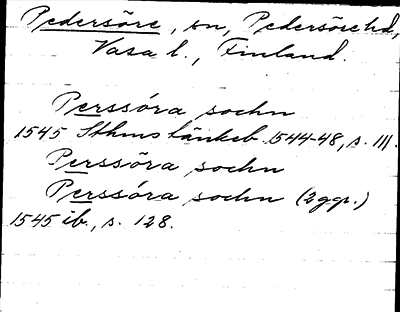 Pedersöre, sn, Pedersöre hd,
Vasa l., Finland.
Perssóra sochn
1545 Sthms tänkeb. 1544-48, s. 111.
Perssöra sochn
Perssóra sochn (2 ggr.)
1545 ib., s. 128.